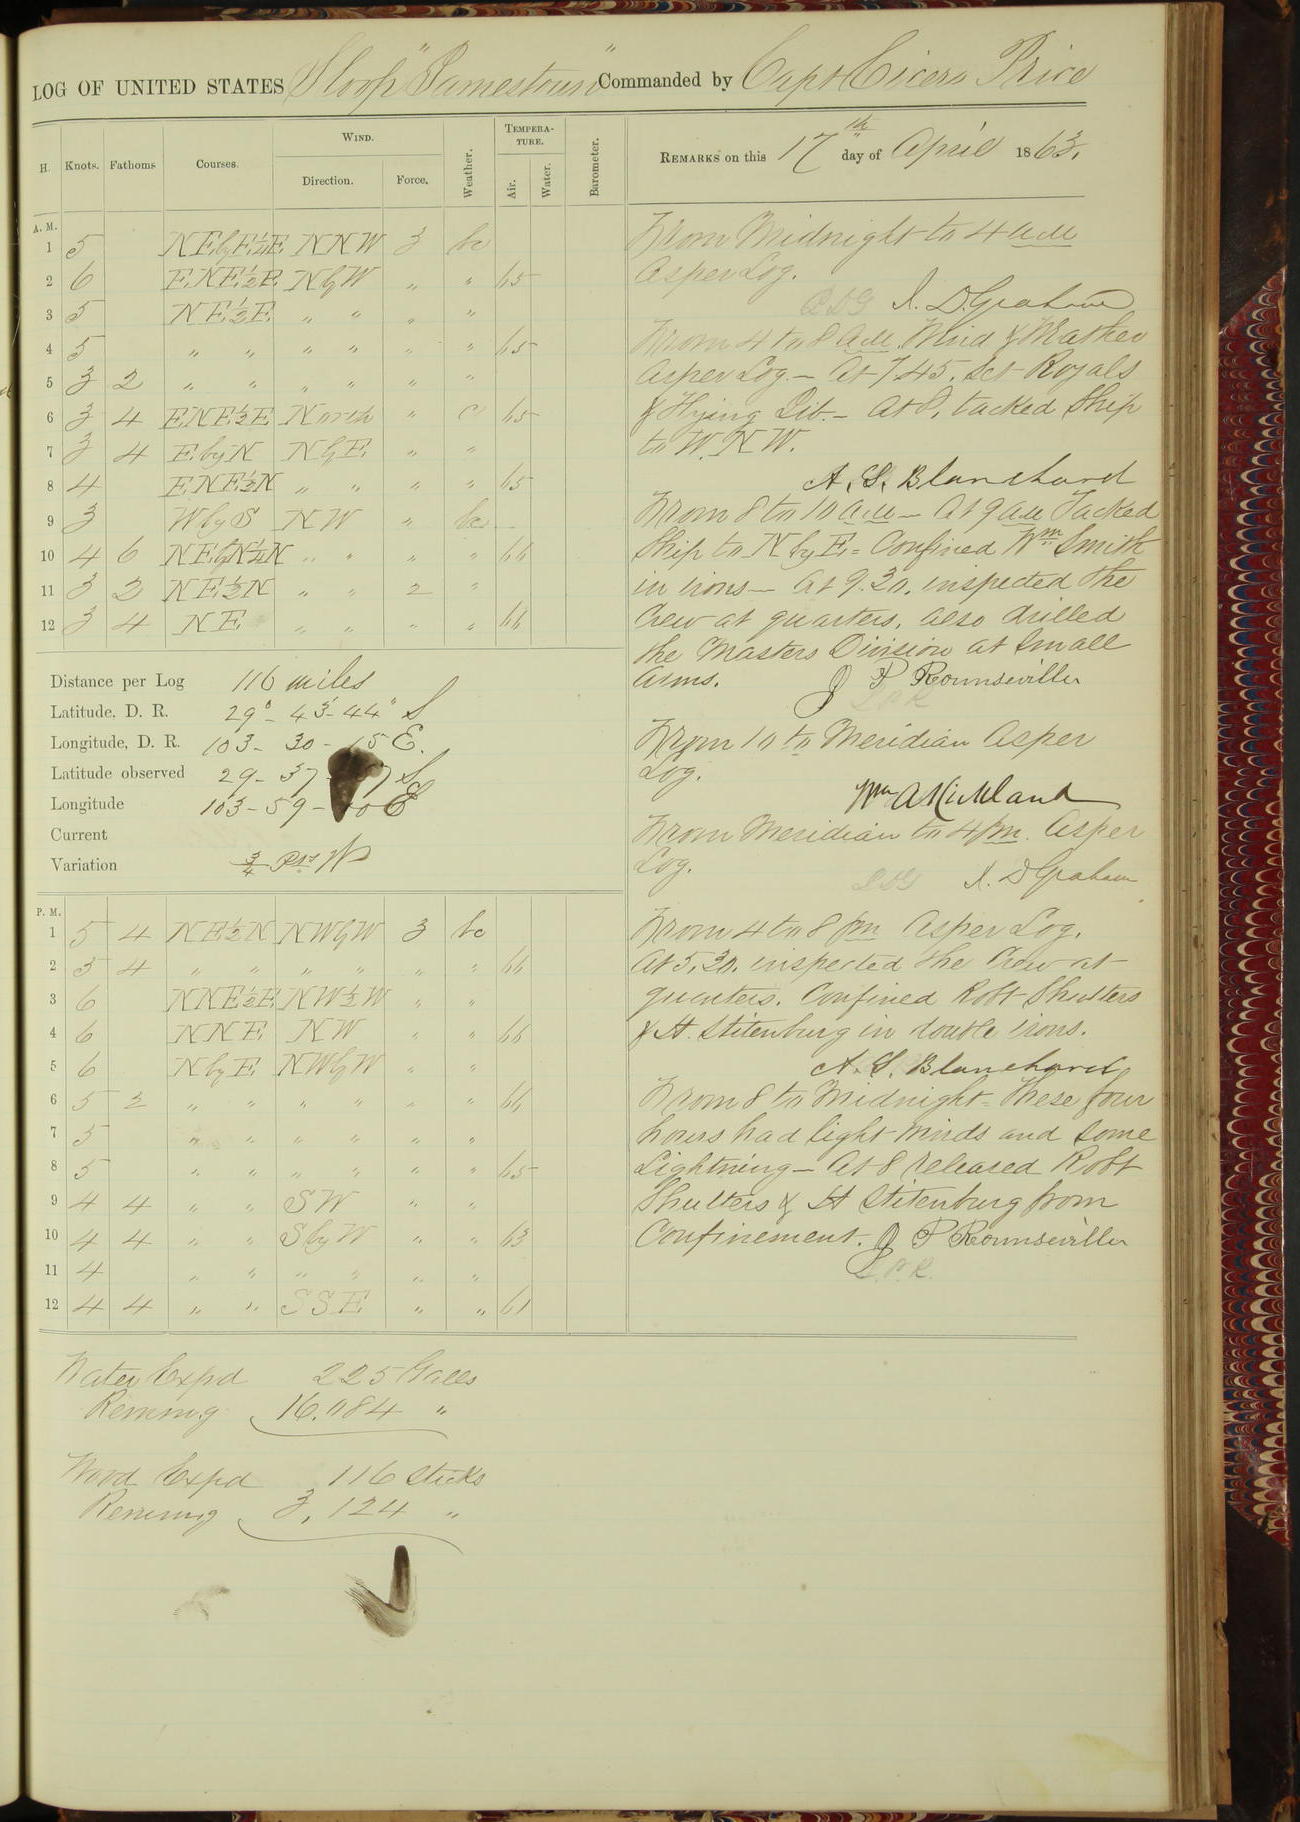 LOG OF UNITED STATES Sloop "Jamestown" Commanded by Capt Cicero Price
H. Knots. Fathoms Courses. WIND. Direction. Force. Weather. TEMPERATURE. Air. Water. Barometer. REMARKS on this 17th day of April 1863.
A. M.
1 5 NEbyE½E NNW 3 bc
2 6 ENE½E NbyW " " 65
3 5 NE½E " " " "
4 5 " " " " " " 65
5 3 2 " " " " " "
6 3 4 ENE½E North " c 65
7 3 4 E by N NbyE " "
8 4 ENE½N " " " " 65
9 3 W by S NW " bc
10 4 6 NEbyN½N " " " " 66
11 3 2 NE½N " " 2 "
12 3 4 NE " " " " 66
From Midnight to 4 a.m
as per Log.
J. D. Graham
From 4 to 8 a.m. Wind & Weather
as per Log.— At 7.45. Set Royals
& Flying Jib.— At 8, tacked Ship
to W. N W.
A. S. Blanchard
From 8 to 10 a.m— At 9 a.m Tacked
Ship to N by E = Confined Wm Smith
in irons— At 9.30. inspected the
Crew at quarters, also drilled
the Masters Division at Small
Arms. J P Rounseville
From 10 to Meridian as per
Log.
Wm A Kirkland
From Meridian to 4 pm. as per
Log. J. D Graham
Distance per Log 116 miles
Latitude, D. R. 29°- 43'-44" S
Longitude, D. R. 103- 30 - 15 E.
Latitude observed 29- 37- 7 S
Longitude 103-59- E
Current
Variation ¾ Pts W
P. M.
1 5 4 NE½N NWbyW 3 bc
2 5 4 " " " " " " 66
3 6 NNE½E NW½W " "
4 6 NNE NW " " 66
5 6 N by E NWbyW " "
6 5 2 " " " " " " 66
7 5 " " " " " "
8 5 " " " " " " 65
9 4 4 " " SW " "
10 4 4 " " S by W " " 63
11 4 " " " " " "
12 4 4 " " SSE " " 61
From 4 to 8 pm as per Log.
At 5.30. inspected the Crew at
quarters. Confined Robt Shulters
& H. Stitenburg in double irons.
A. S. Blanchard
From 8 to Midnight- These four
hours had light winds and some
Lightning— At 8 released Robt
Shulters & H Stitenburg from
Confinement. J P Rounseville
J.P.R.
Water Expd 225 Galls
Remng 16.084 "
Wood Expd 116 Sticks
Remng 3,124 "